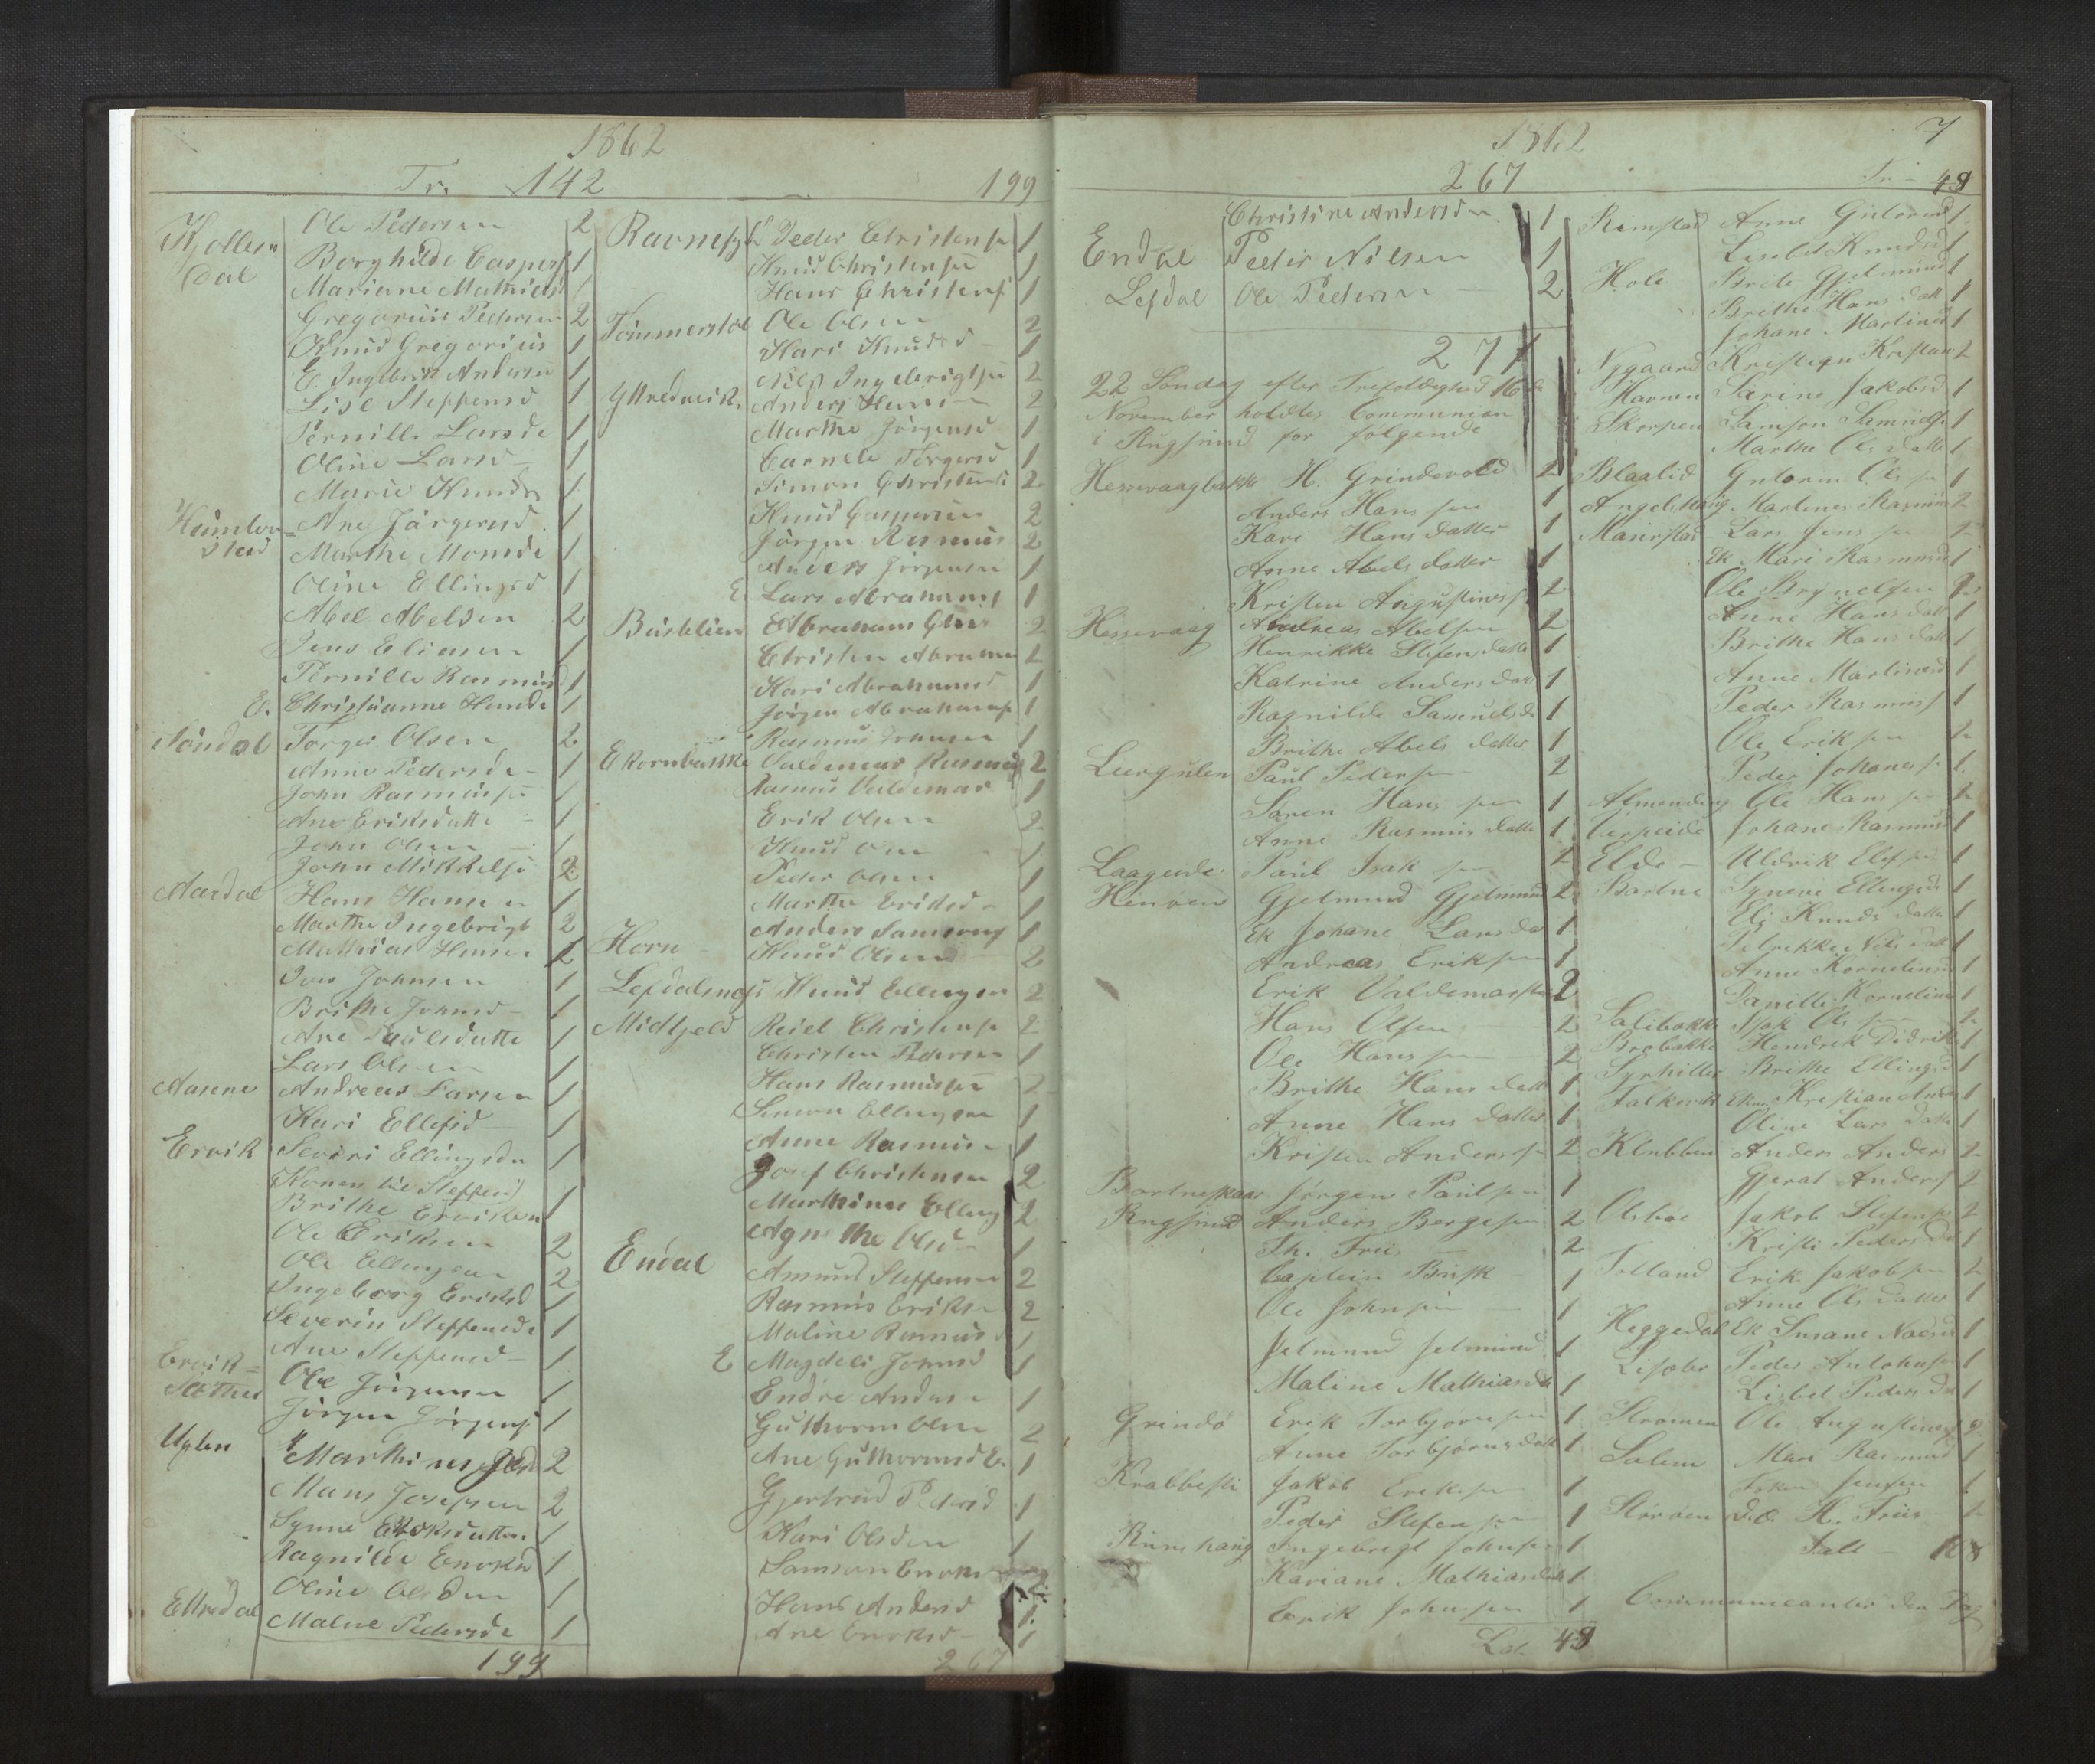 1862
Tr. 142 199
Ole Pedersen 2
Borghilde Caspers 1
dal
Mariane Mathiesd 1
Gregorius Pedersen 2
Knud Gregorius 1
E. Ingebrigt Andersen 1
Lise Steffensd 1
Pernille Larsde 1
Oline Larsd 1
Marie Knudsd 1
Ane Jörgensd 1
Marthe Monsde 1
Oline Ellingsd 1
Abel Abelsen 2
Jens Eliasen 1
Pernille Rasmusd 1
E. Christianne Hansde 1
Torger Olsen 2
Anne Pedersde 1
John Rasmussen 1
Ane Eriksdatte 1
John Olsen 1
John Mikkelse 2
Aardal Hans Hansen 1
Marthe Ingebrigt 2
Mathias Hansen 1
Ivar Johnsen 1
Brithe Johnsd 1
Ane Paulsdatte 1
Lars Olsen 1
Aasene Andreas Larsen 1
Kari Ellefsd 1
Ervik Severi Ellingsdn 1
Konen til Steffen
Brithe Erviken 1
Ole Eriksen 2
Ole Ellingsen 2
Ingeborg Eriksd 1
Severin Steffensde 1
Ane Steffensd 1
Ervik=
Ole Jörgensen 1
Jörgen Jörgens 1
Marthinus 2
Mons Josefsen 2
Synne Enoksdatter 1
Ragnilde Enoksd 1
Oline Olsden 1
Malene Pedersde 1
199
Peder Christense 1
Knud Christensen 1
Hans Christens 1
Ole Olsen 2
Kari Knudsd 1
Nils Ingebrigtse 2
Anders Hansen 2
Marthe Jörgensd 1
Carnele Torgersd 1
Simon Christense 2
Knud Caspersen 2
Jörgen Rasmus 2
Anders Jörgensen 1
E. Lars Abrahams 1
Abraham 2
Christen Abraham 2
Kari Abrahamsd 1
Jörgen Abrahamse 1
Rasmus Johnsen 1
Ekornbakke Valdemar Rasmus 2
Rasmus Valdemar 1
Erik Olsen 2
Knud Olsen 1
Peder Olsen 1
Marthe Eriksd 1
Anders Samsons 1
Horn Knud Olsen 2
Lefdalsnes Knud Ellingsen 2
Midtgeld Reiel Christense 2
Christen Pedersen 1
Hans Rasmussen 2
Simon Ellingsen 1
Anne Rasmus 1
Josef Christensen 2
Marthinus Elling 2
Agnethe Olsd 1
Endal
Amund Steffensen 2
Rasmus Eriksen 2
Maline Rasmusd 1
E Magdeli Johnsd 1
Endre Anders 1
Guthorm Olsen 2
Ane Guthormsd E. 1
Gjertrud Pedersd 1
Kari Olsden 1
Samson Enoks
Hans Andersd 1
Ane Enoksd 1
267
1862 7
267 Tr. 48
Christine Andersdn 1
Endal Peder Nilsen 1
Lefdal Ole Pedersen 2
271
22 Söndag efter Trefoldighed 16de
November holdtes Communion
i Rugsund for følgende
H. Grindevold 2
Anders Hanssen 1
Kari Hansdatter 1
Anne Abelsdatter 1
Kristen Augustinuss 2
Hessevaag Andreas Abelsen 2
Henrikke Stefensdatte 1
Katrine Andersdat 1
Ragnilde Samuelsda 1
Brithe Abelsdatter 1
Leirgulen Paul Pedersen 2
Søren Hanssen 1
Anne Rasmusdatte 1
Paul Isaksen
Henøen Gjelmund Gjelmund 2
Ek Johane Larsda 1
Andreas Eriksen 1
Erik Valdemarsen 2
Hans Olsen 2
Ole Hanssen 2
Brithe Hansdatt 1
Anne Hansdatter 1
Kristen Anderssen 2
Bortneskaar Jörgen Paulsen 1
Rugsund Anders Bergesen 2
Th. Friis 2
Captein Busk 1
Ole Johnsen 1
Jelmund Jelmund 1
Maline Mathiasdt 1
Grindö Erik Torbjornsen 1
Anne Torbjørnsdatt 1
Krabbesti Jakob Eriksen 1
Peder Stefensen 1
Ingebregt Johnsen 1
Kariane Mathiasdat 1
Erik Johnsen 1
Lat. 48
Rimstad Anne Gutormsd 1
Lisabet Knudsd 1
Hole Brite Gjelmund 1
Brithe Hansdatt 1
Johane Martinusd 1
Nygaard Kristen Kristian 2
Hamen Sarine Jakobsd 1
Skorpen Samson Samuels 1
Marthe Olsdatte 1
Blaalid Gutorm Olssen 1
Martines Rasmus 2
Lars Jenssen
Ek Mari Rasmusd 1
Ole Brynelsen 2
Anne Hansdatt 1
Brithe Hansdatt 1
Anne Martinusd 1
Peder Rasmuss 1
Ole Eriksen 2
Peder Johanesse 1
Almending Ole Hanssen 2
Johane Rasmusd 1
Elde Uldrik Elefsen 1
Bortne Synneve Ellingsd 1
Eli Knudsdatter 1
Anne Kornelius 1
Danille Kornelius 1
Isak Olssen 2
Hendrik Didrik 1
Brithe Ellingsd 1
Oline Larsdatte 1
Klubben Anders Anders 2
Gjerat Anders 2
Jakob Stefense 2
Kristi Pedersda 1
Tolland Erik Jakobsen 2
Anne Olsdatter 1
Heggedal Ek Susane Nielsd 1
Peder 1
Lisbet Pedersda 1
Strømen Ole Augustinus 2
Mari Rasmusd 1
H. Friis 2
Talt 108
Communicanter den Dag